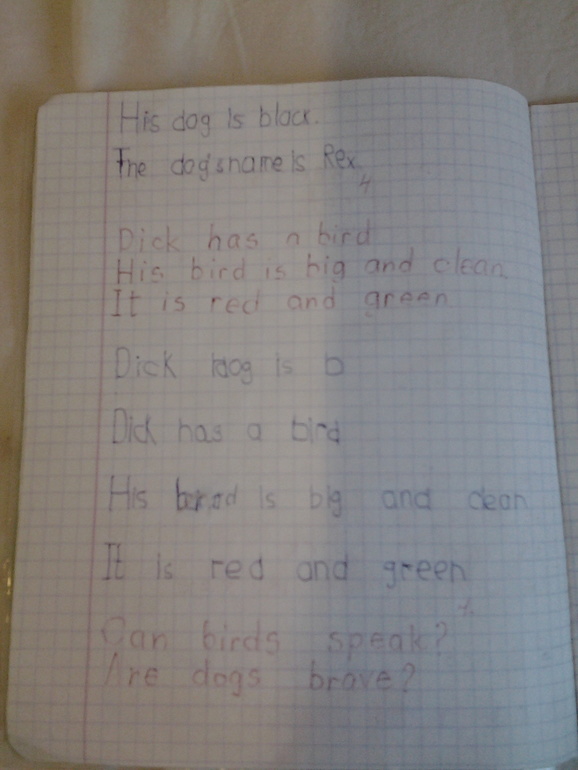 His dog is black.
The dogsname is Rex.
4
Dick has a bird
His bird is big and clean.
It is red and green
Dick is b
Dick has a bird
His is big and clean
It is red and green
Can birds speak?
Are dogs brave?